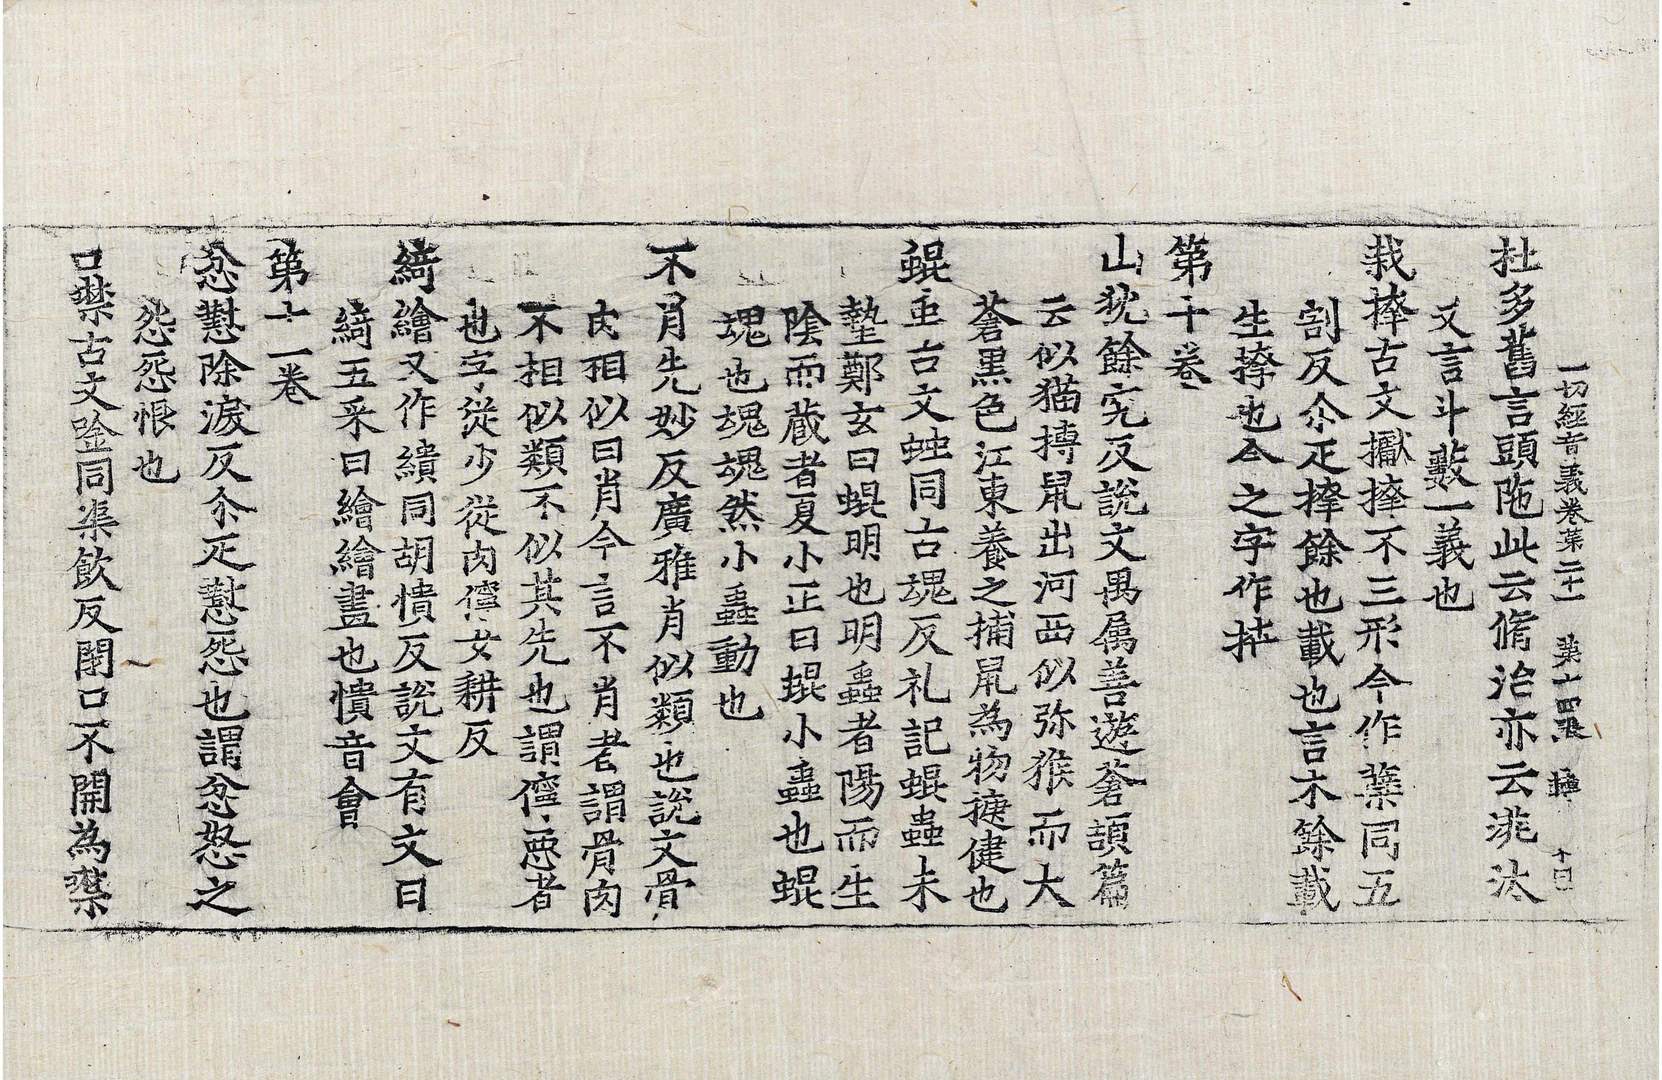 一切經音義卷第二十一 第十四張 𭓇 十四
杜多舊言頭陁此云脩治亦云洮汰
又言斗藪一義也
栽㨆古文巘㨆不三形今作蘖同五
割反尒疋㨆餘也載也言木餘載
生㨆也今之字作
第十卷
山狖餘究反說文禺属善遊蒼頡篇
云似猫搏鼠出河西似弥猴而大
蒼黒色江東養之捕鼠為物捷健也
蜫虫古文䖵同古魂反礼記蜫蟲未
蟄鄭玄曰蜫明也明蟲者陽而生
陰而蔵者夏小正曰蜫小蟲也蜫
魂也魂魂然小蟲動也
不肖先妙反廣雅肖似類也說文骨
肉相似曰肖今言不肖者謂骨肉
不相似類不似其先也謂儜惡者
也字從少從肉儜女耕反
綺繪又作繢同胡憒反說文有文曰
綺五采曰繪繪畫也憒音會
第十一卷
忿懟除淚反尒疋懟怨也謂忿怒之
怨怨恨也
口噤古文唫同渠飲反閉口不開為噤